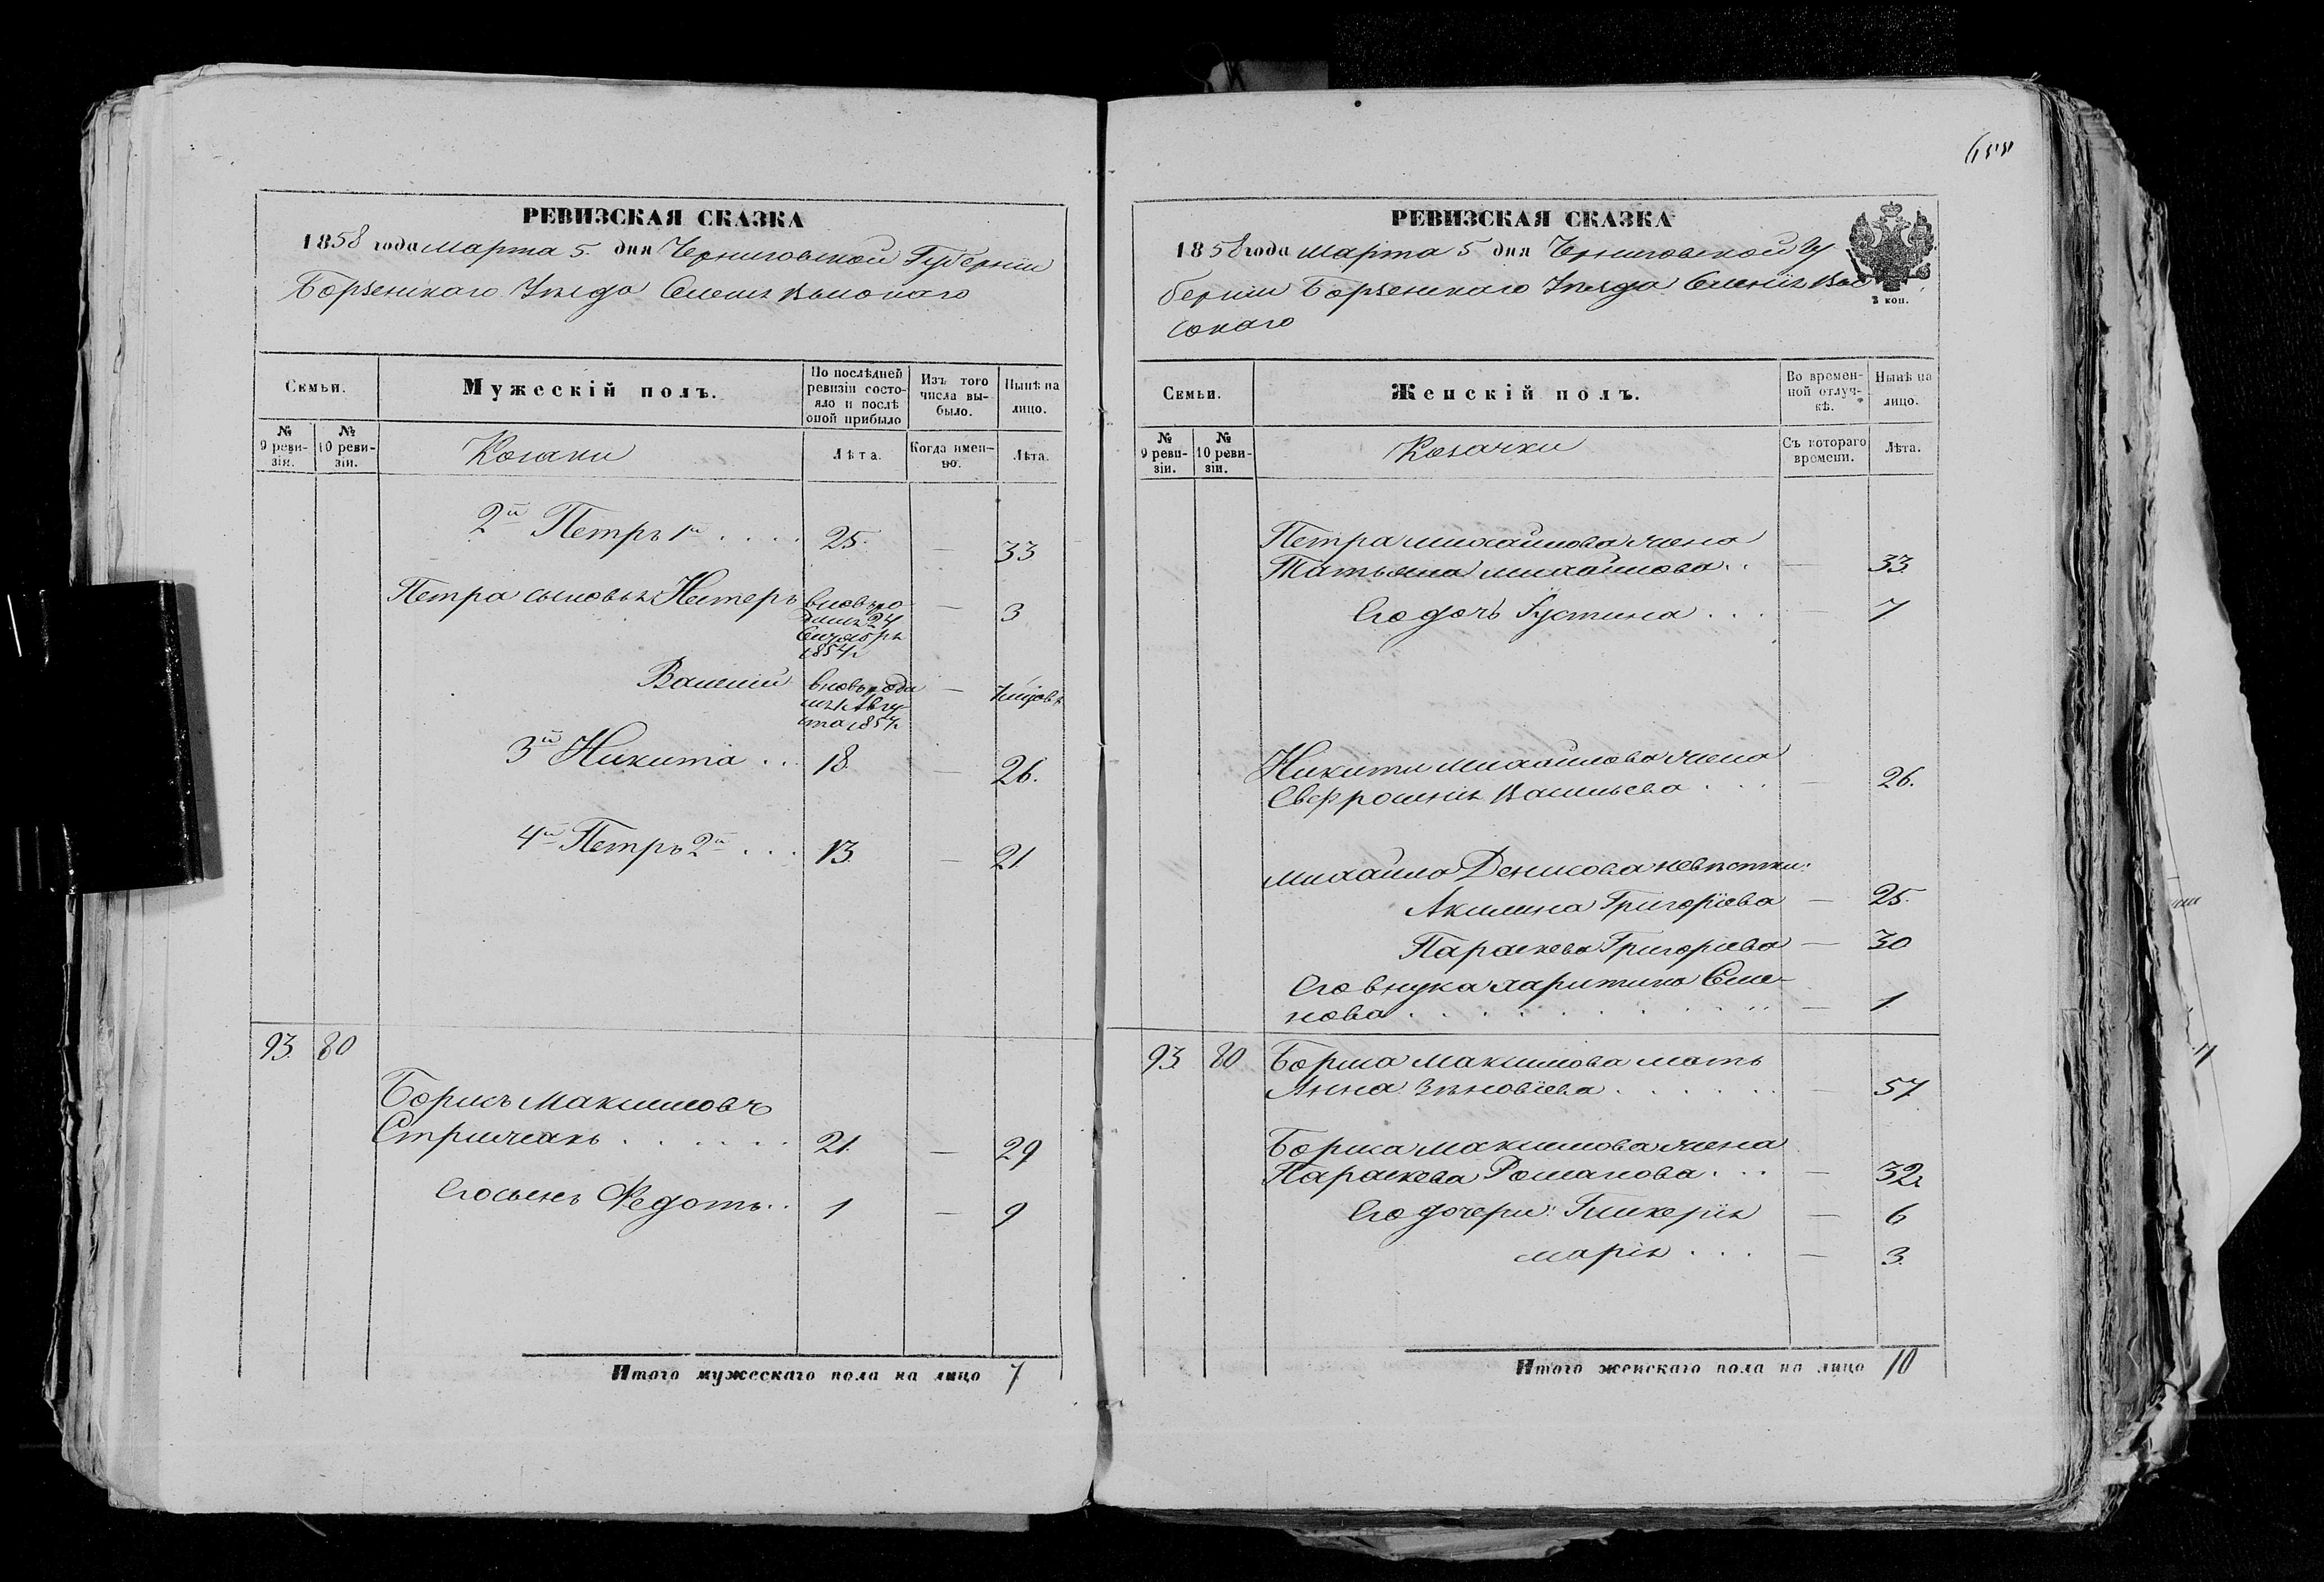 РЕВИЗСКАЯ СКАЗКА
1858 года Марта 5 дня Черниговской Губерніи
Борзенскаго Уѣзда Высокаго
Семьи.
Мужескій полъ.
По послѣдней ревизіи состояло и послѣ оной прибыло
Изъ того числа выбыло.
Нынѣ на лицо.
№ 9 ревизіи.
№ 10 ревизіи.
Козаки
Лѣта.
Когда именно.
Лѣта.
2й Петръ 1й . . . . 25. — 33
Петра сыновья: Нестеръ вновь ро — 3
1854г
Василій вновь роди —
ста 185
3й Никита . . 18. — 26.
4й Петръ 2й . . . 13. — 21
93. 80
Борисъ Максимовъ
Стрижакъ . . . . . . 21. — 29
Его сынъ Федотъ . . 1 — 9
Итого мужескаго пола на лицо 7
РЕВИЗСКАЯ СКАЗКА
1858 года Марта 5 дня Черниговской Гу
берніи Борзенскаго Уѣзда Вы
сокаго
2 коп.
Семьи.
Женскій полъ.
Во временной отлучкѣ.
Нынѣ на лицо.
№ 9 ревизіи.
№ 10 ревизіи.
Козачки
Съ котораго времени.
Лѣта.
Петра Михайлова жена
Татьяна Михайлова . . — 33.
Его дочь Іустина . . . — 7
Никиты Михайлова жена
Евфросинія Васильева . . . — 26.
Михайла Денисова невѣстки:
Акилина Григоріева — 25.
Параскева Григоріева — 30
Его внука Харитина Семе-
нова . . . . . . . . . . — 1.
93. 80. Бориса Максимова мать
Анна Зѣновіева . . . . . . — 57
Бориса Максимова жена
Параскева Романова . . . — 32.
Его дочери: Гликерія — 6
Марія . . . — 3.
Итого женскаго пола на лицо 10